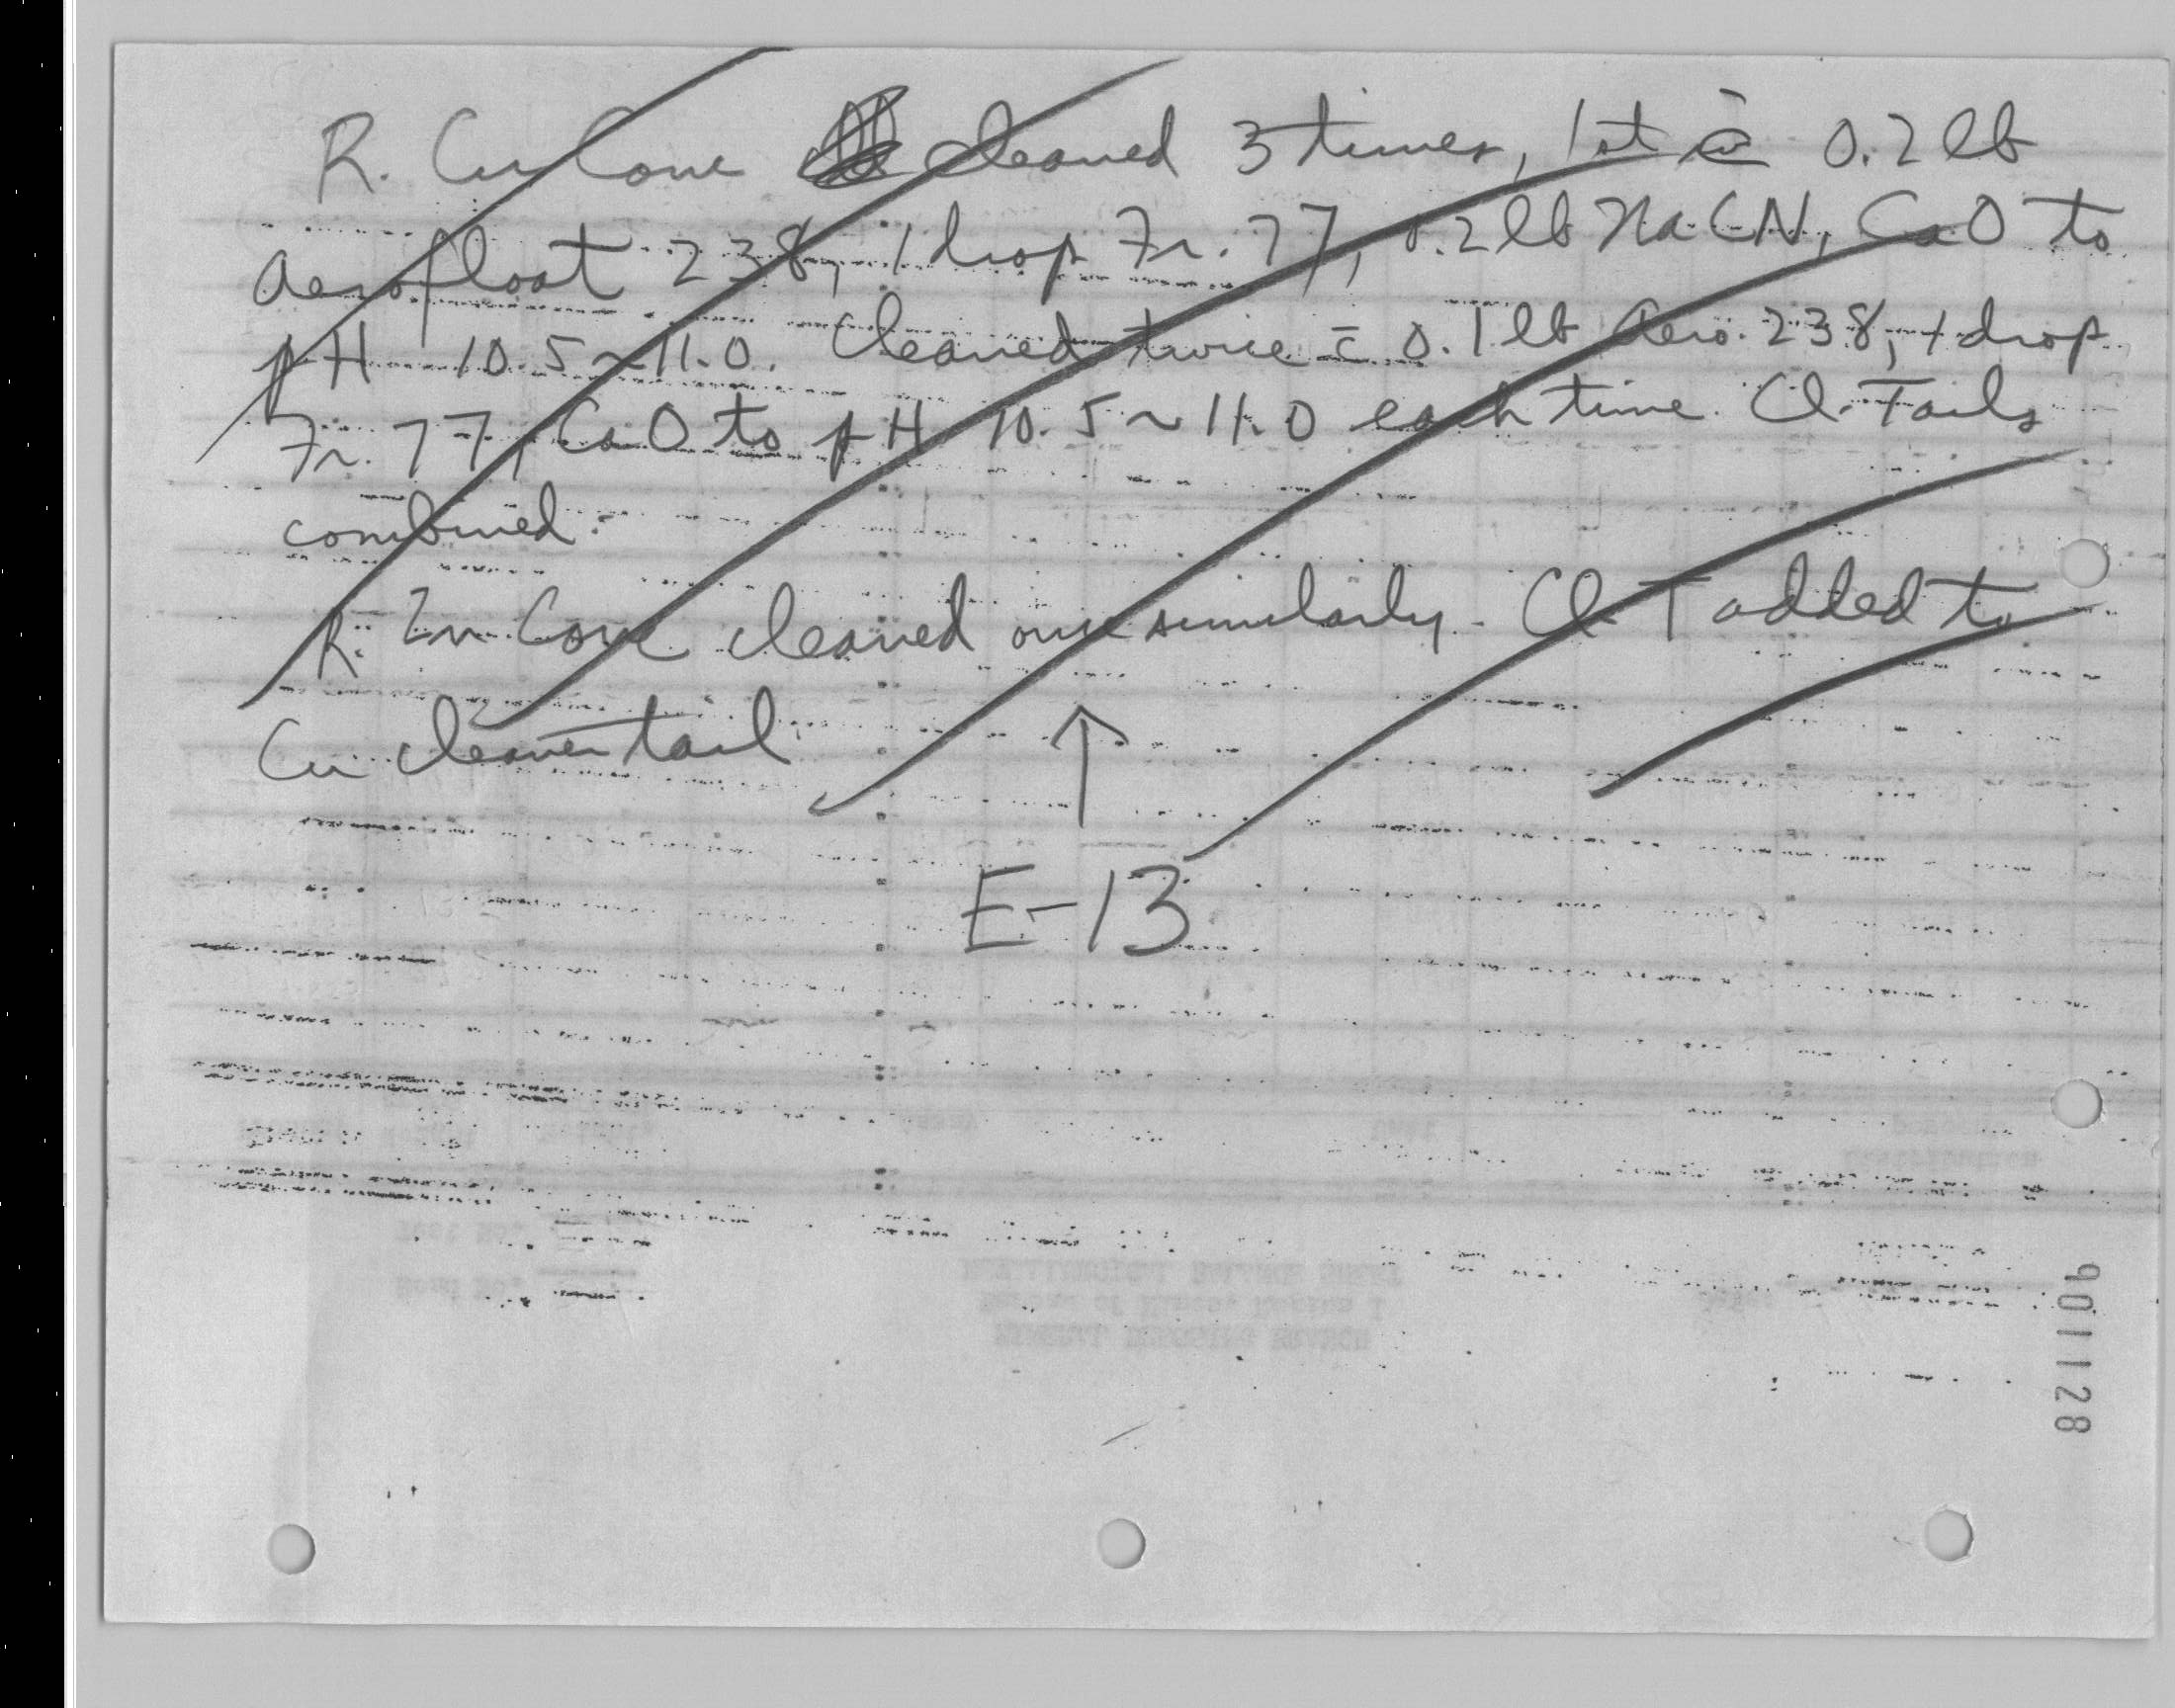 R. Cu Conc cleaned 3 times, 1st c̄ 0.2 lb
Aerofloat 238, 1 drop Fr. 77, 0.2 lb NaCN, CaO to
pH 10.5 ~ 11.0. Cleaned twice c̄ 0.1 lb Aero. 238, 1 drop
Fr. 77, CaO to pH 10.5 ~ 11.0 each time. Cl. Tails
combined.
R. Zn Conc cleaned once similarly. Cl. T added to
Cu cleaner tail
↑
E-13
901128